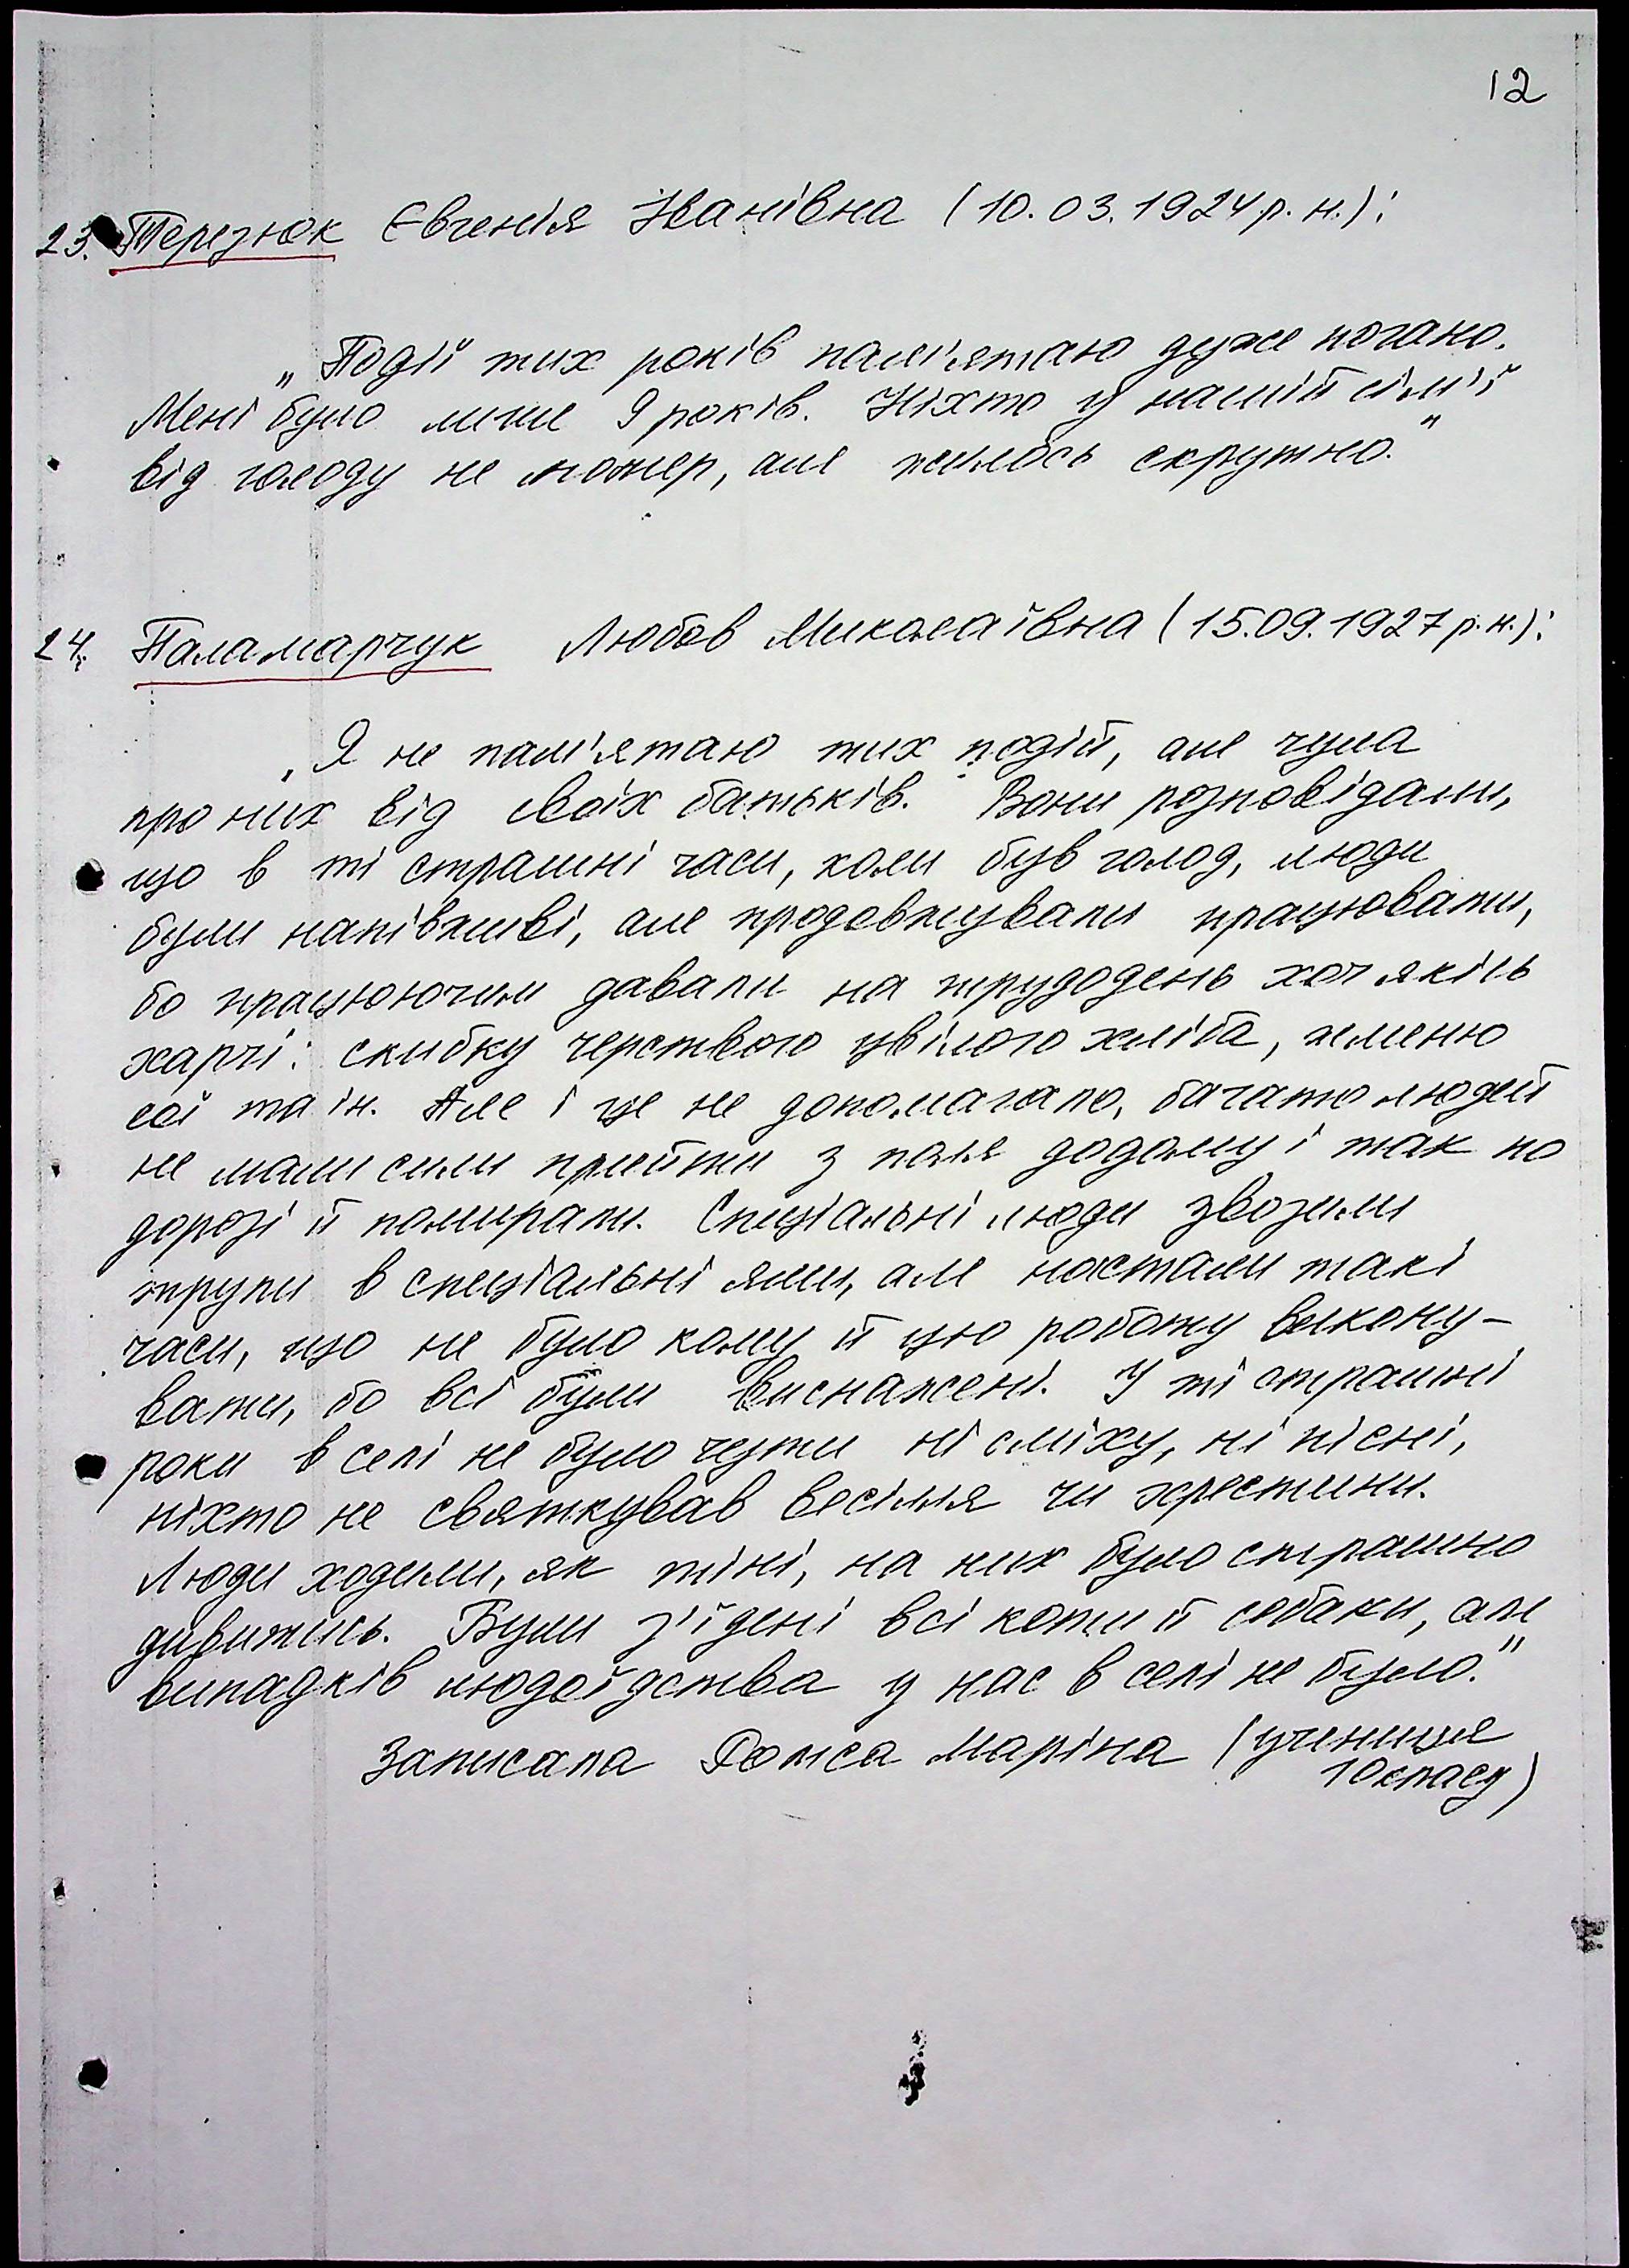 12
23. Терезюк Євгенія Іванівна (10.03.1924 р. н.):
„Події тих років пам'ятаю дуже погано.
Мені було лише 9 років. Ніхто у нашій сім'ї
від голоду не помер, але жилось скрутно."
24. Паламарчук Любов Миколаївна (15.09.1927 р. н.):
„Я не пам'ятаю тих подій, але чула
про них від своїх батьків. Вони розповідали,
що в ті страшні часи, коли був голод, люди
були напівживі, але продовжували працювати,
бо працюючим давали на трудодень хоч якісь
харчі: скибку черствого цвілого хліба, жменю
сої та ін. Але і це не допомагало, багато людей
не мали сили прийти з поля додому і так по
дорозі й помирали. Спеціальні люди звозили
трупи в спеціальні ями, але настали такі
часи, що не було кому й цю роботу викону-
вати, бо всі були виснажені. У ті страшні
роки в селі не було чути ні сміху, ні пісні,
ніхто не святкував весілля чи хрестини.
Люди ходили, як тіні, на них було страшно
дивитись. Були з'їдені всі коти й собаки, але
випадків людоїдства у нас в селі не було."
Записала Маріна (учениця
10 класу)